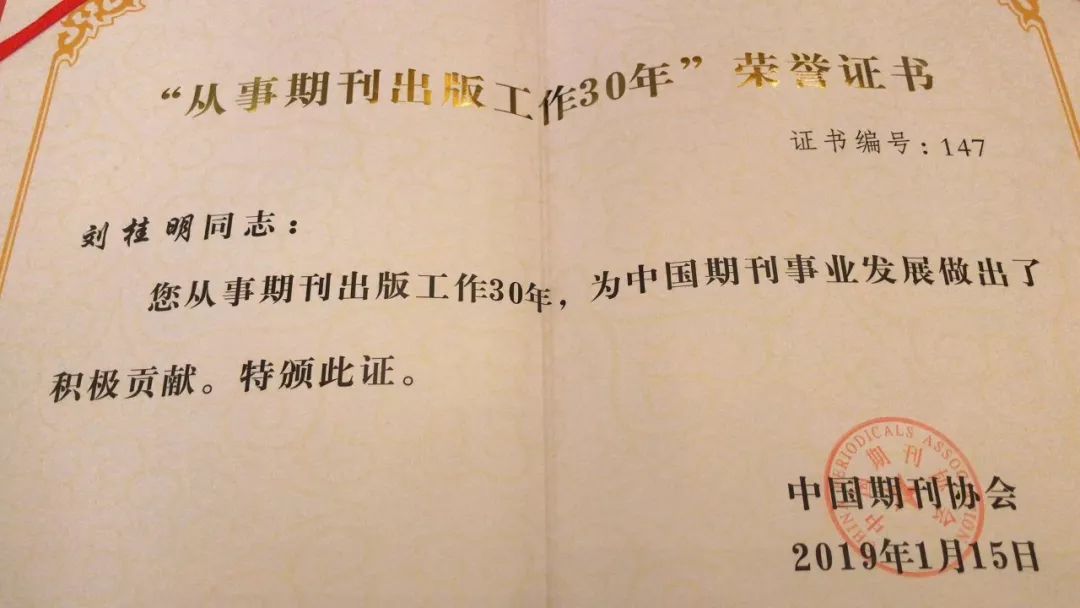 “从事期刊出版工作30年”荣誉证书
证书编号：147
刘桂明同志：
您从事期刊出版工作30年，为中国期刊事业发展做出了
积极贡献。特颁此证。
中国期刊协会
2019年1月15日
PERIODICALS ASSOCIATION
中国期刊协会